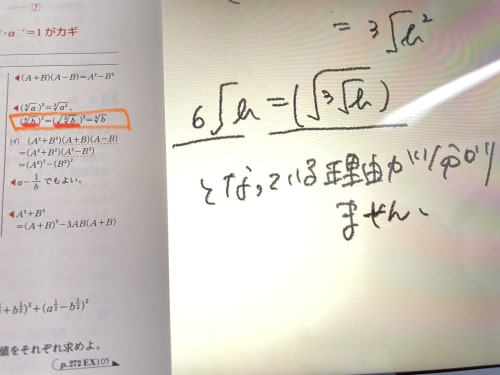 [2]
=1 がカギ
◀(A+B)(A−B)=A²−B²
◀(∜a)²=∜a²,
(⁶√b)²=(√³√b)²=³√b
(イ) (A²+B²)(A+B)(A−B)
=(A²+B²)(A²−B²)
=(A²)²−(B²)²
◀a−1/b でもよい。
◀A³+B³
=(A+B)³−3AB(A+B)
+b^{1/2})²+(a^{1/2}−b^{1/2})²
値をそれぞれ求めよ。
p.272 EX105
= ³√b²
⁶√b=(√³√b)
となっている理由が分かり
ません、